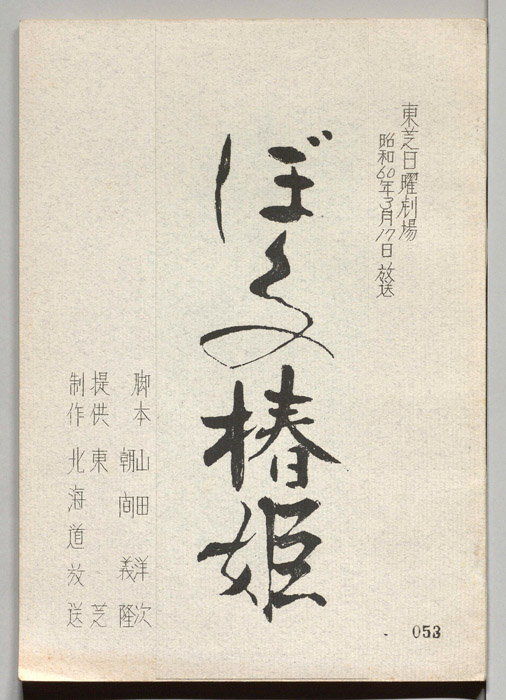 東芝日曜劇場
昭和60年3月17日放送
ぼくの椿姫
脚本 山田洋次
朝間義隆
提供 東芝
制作 北海道放送
053